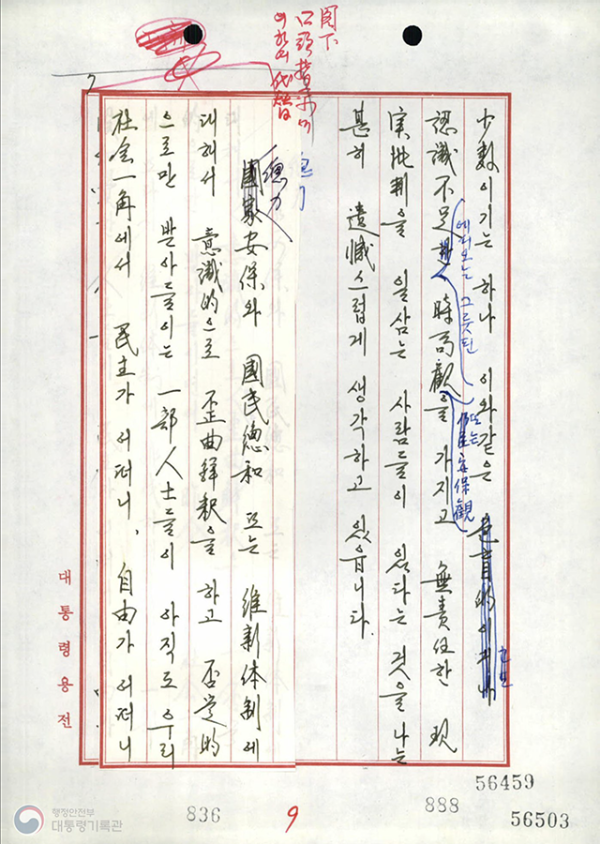 閣下
口頭指示에
의하여 代替함
少數이기는 하나 이와같은 色盲的이거나
혹은
認識不足한 時局觀을 가지고 無責任한 現
에서오는 그릇된
또는
安保觀
実批判을 일삼는 사람들이 있다는 것을 나는
甚히 遺憾스럽게 생각하고 있읍니다.
國家安保와 國民總和 또는 維新体制에
總力
대해서 意識的으로 歪曲釋釈을 하고 否定的
으로만 받아들이는 一部人士들이 아직도 우리
社会一角에서 民主가 어떠니, 自由가 어떠니
대통령용전
행정안전부
대통령기록관
836
9
888
56459
56503